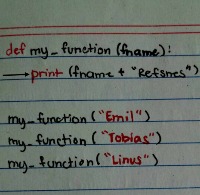 def my_function (fname):
→ print (fname + "Refsnes")
my_function ("Emil")
my_function ("Tobias")
my_function ("Linus")